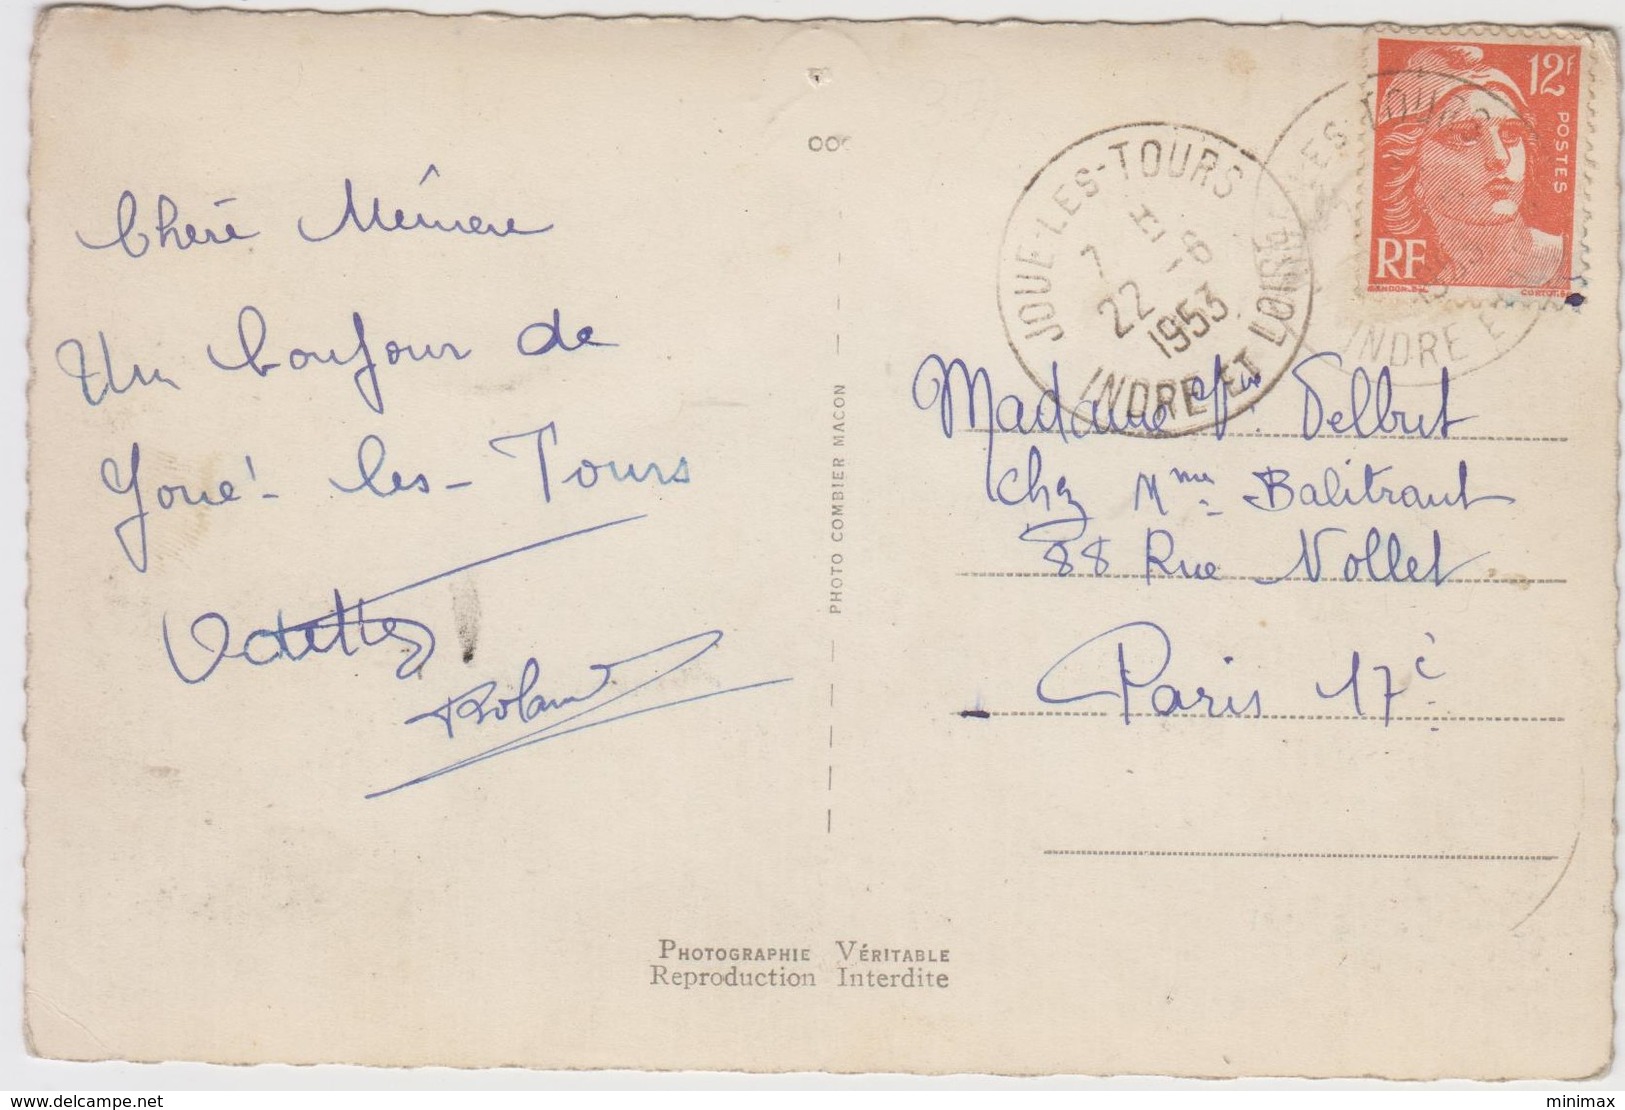 Chère Mémère
Un bonjour de
Joué-les-Tours
Odette
Roland
PHOTO COMBIER MACON
PHOTOGRAPHIE VÉRITABLE
Reproduction Interdite
12F
POSTES
RF
JOUE-LES-TOURS
22 -8
1953
INDRE ET LOIRE
Madame Vve Delbut
chez Mme Balitraut
88 Rue Nollet
Paris 17e
www.delcampe.net
minimax